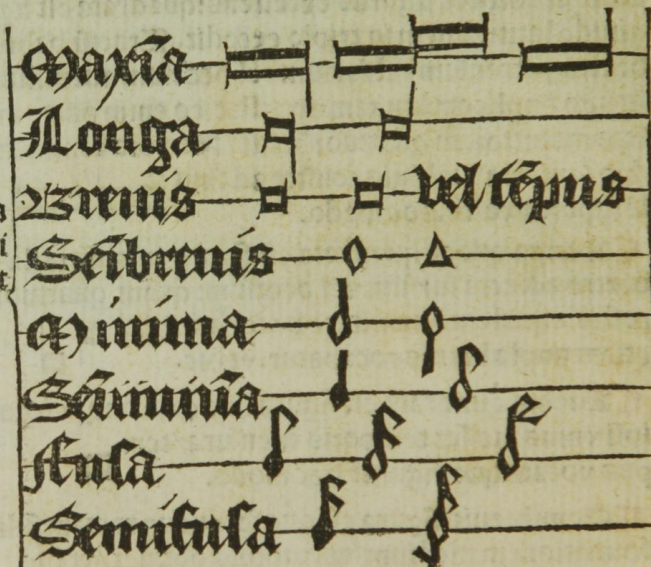 Maxīa
Longa
Brevis vel tēpus
Sēibrevis
Minima
Sēiminīa
Fusa
Semifusa